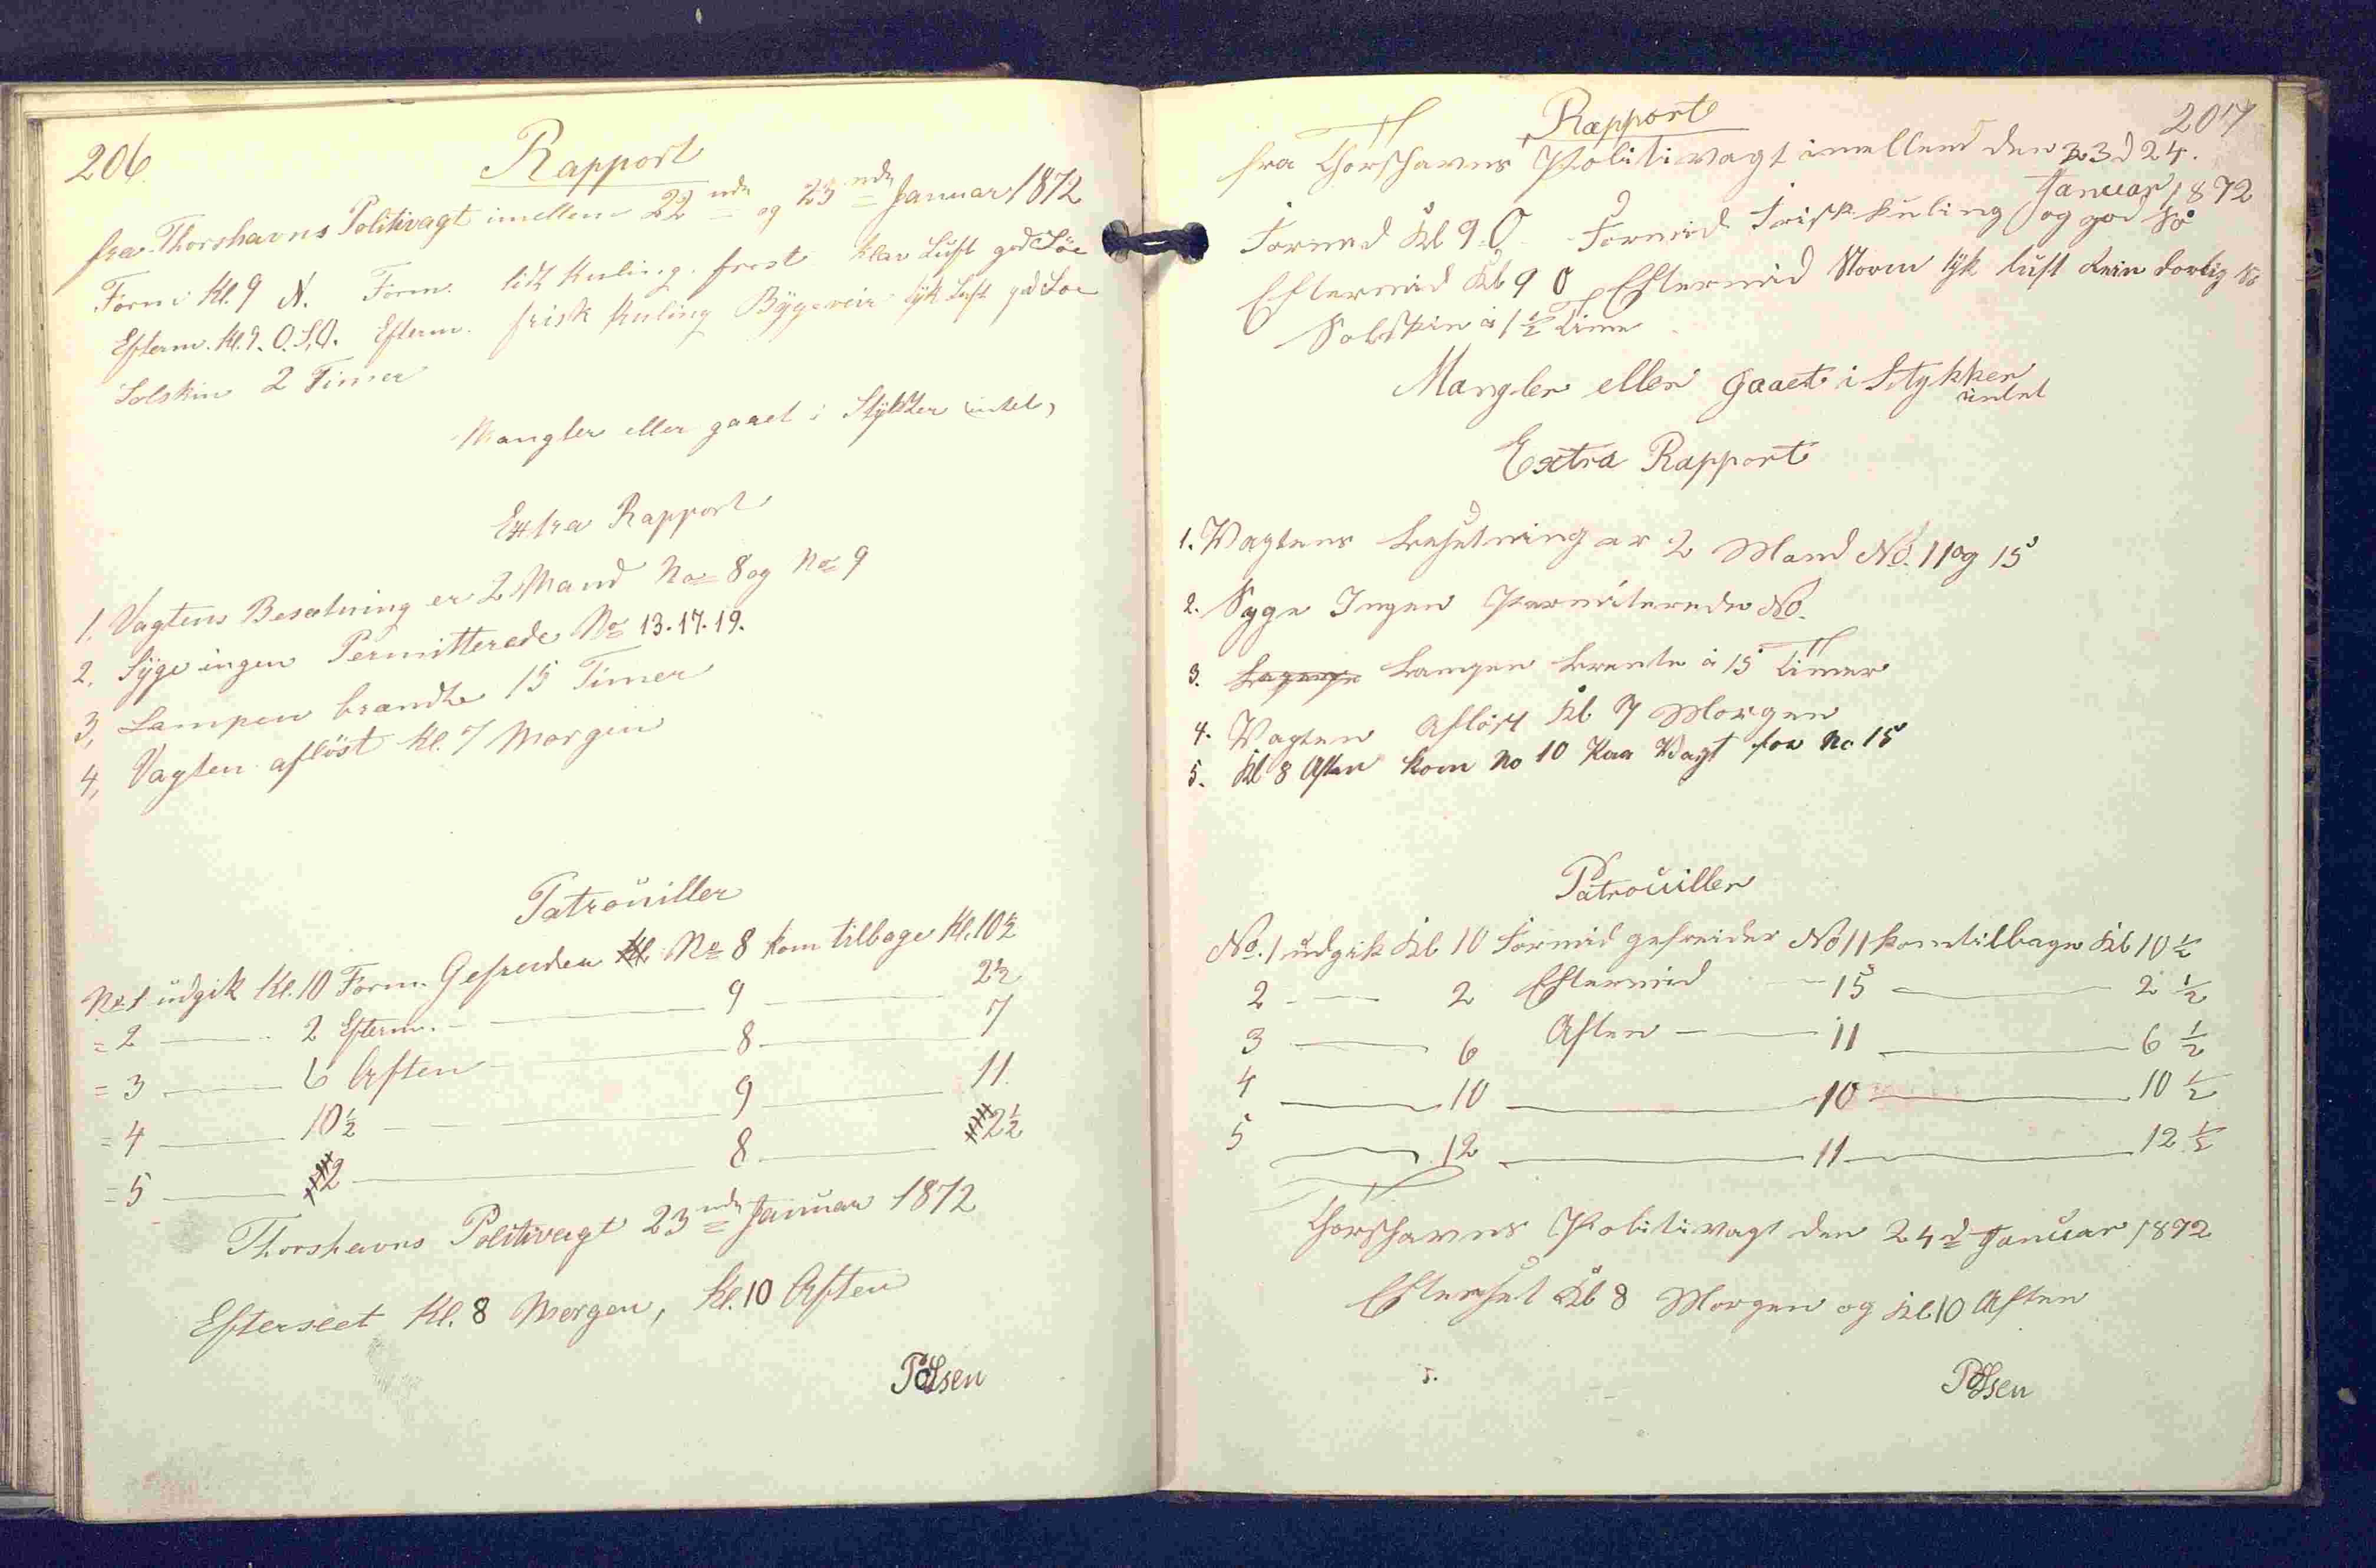 206
Rapport
fra Thorshavns Politivagt imellem 22nde og 23nde Januar 1872
Form. Kl. 9 N. Form. lidt Kuling. frost klar Luft god Söe
Efterm. Kl. 9. O.S.O. Efterm. frisk Kuling Bygeveir tyk Luft god Soe
Solskin 2 Timer
Mangler eller gaaet i Stykker intet,
Extra Rapport
1. Vagtens Besætning er 2 Mand No 8 og No 9
2. Syge ingen Permitterede No 13. 17. 19.
3, Lampen brændte 15 Timer
4, Vagten aflöst Kl. 7 Morgen
Patrouiller
No 1 udgik Kl. 10 Form. Gefreider No 8 kom tilbage Kl. 10½
= 2 — 2 Efterm. — 9 — 2½
= 3 — 6 Aften — 8 — 7
= 4 — 10½ — 9 — 11
= 5 — 2 — 8 — 2½
Thorshavns Politivagt 23nde Januar 1872
Efterseet Kl. 8 Morgen, Kl. 10 Aften
POlsen
207
Rapport
fra Thorshavns Politivagt imellem den 23 d 24.
Januar 1872
Formid Kl 9 O Formid Frisk kuling og god Sö
Eftermid Kl 9 O Eftermid Storm tyk luft Rein dorlig Sö
Solskin i 1½ Time
Mangler eller gaaet i Stykker
intet
Extra Rapport
1. Vagtens besetning er 2 Mand No. 11 og 15
2. Syge Ingen Permiterede No.
3. Lampen brente i 15 Timer
4. Vagten Aflöst Kl 7 Morgen
5. Kl 8 Aften kom No 10 paa Vagt for No 15
Patrouiller
No. 1 udgik Kl 10 Formid gefreider No 11 kom tilbage Kl 10½
2 — 2 Eftermid — 15 — 2½
3 — 6 Aften — 11 — 6½
4 — 10 — 10 — 10½
5 — 12 — 11 — 12½
Thorshavns Politivagt den 24d Januar 1872
Efterset Kl 8 Morgen og Kl 10 Aften
POlsen